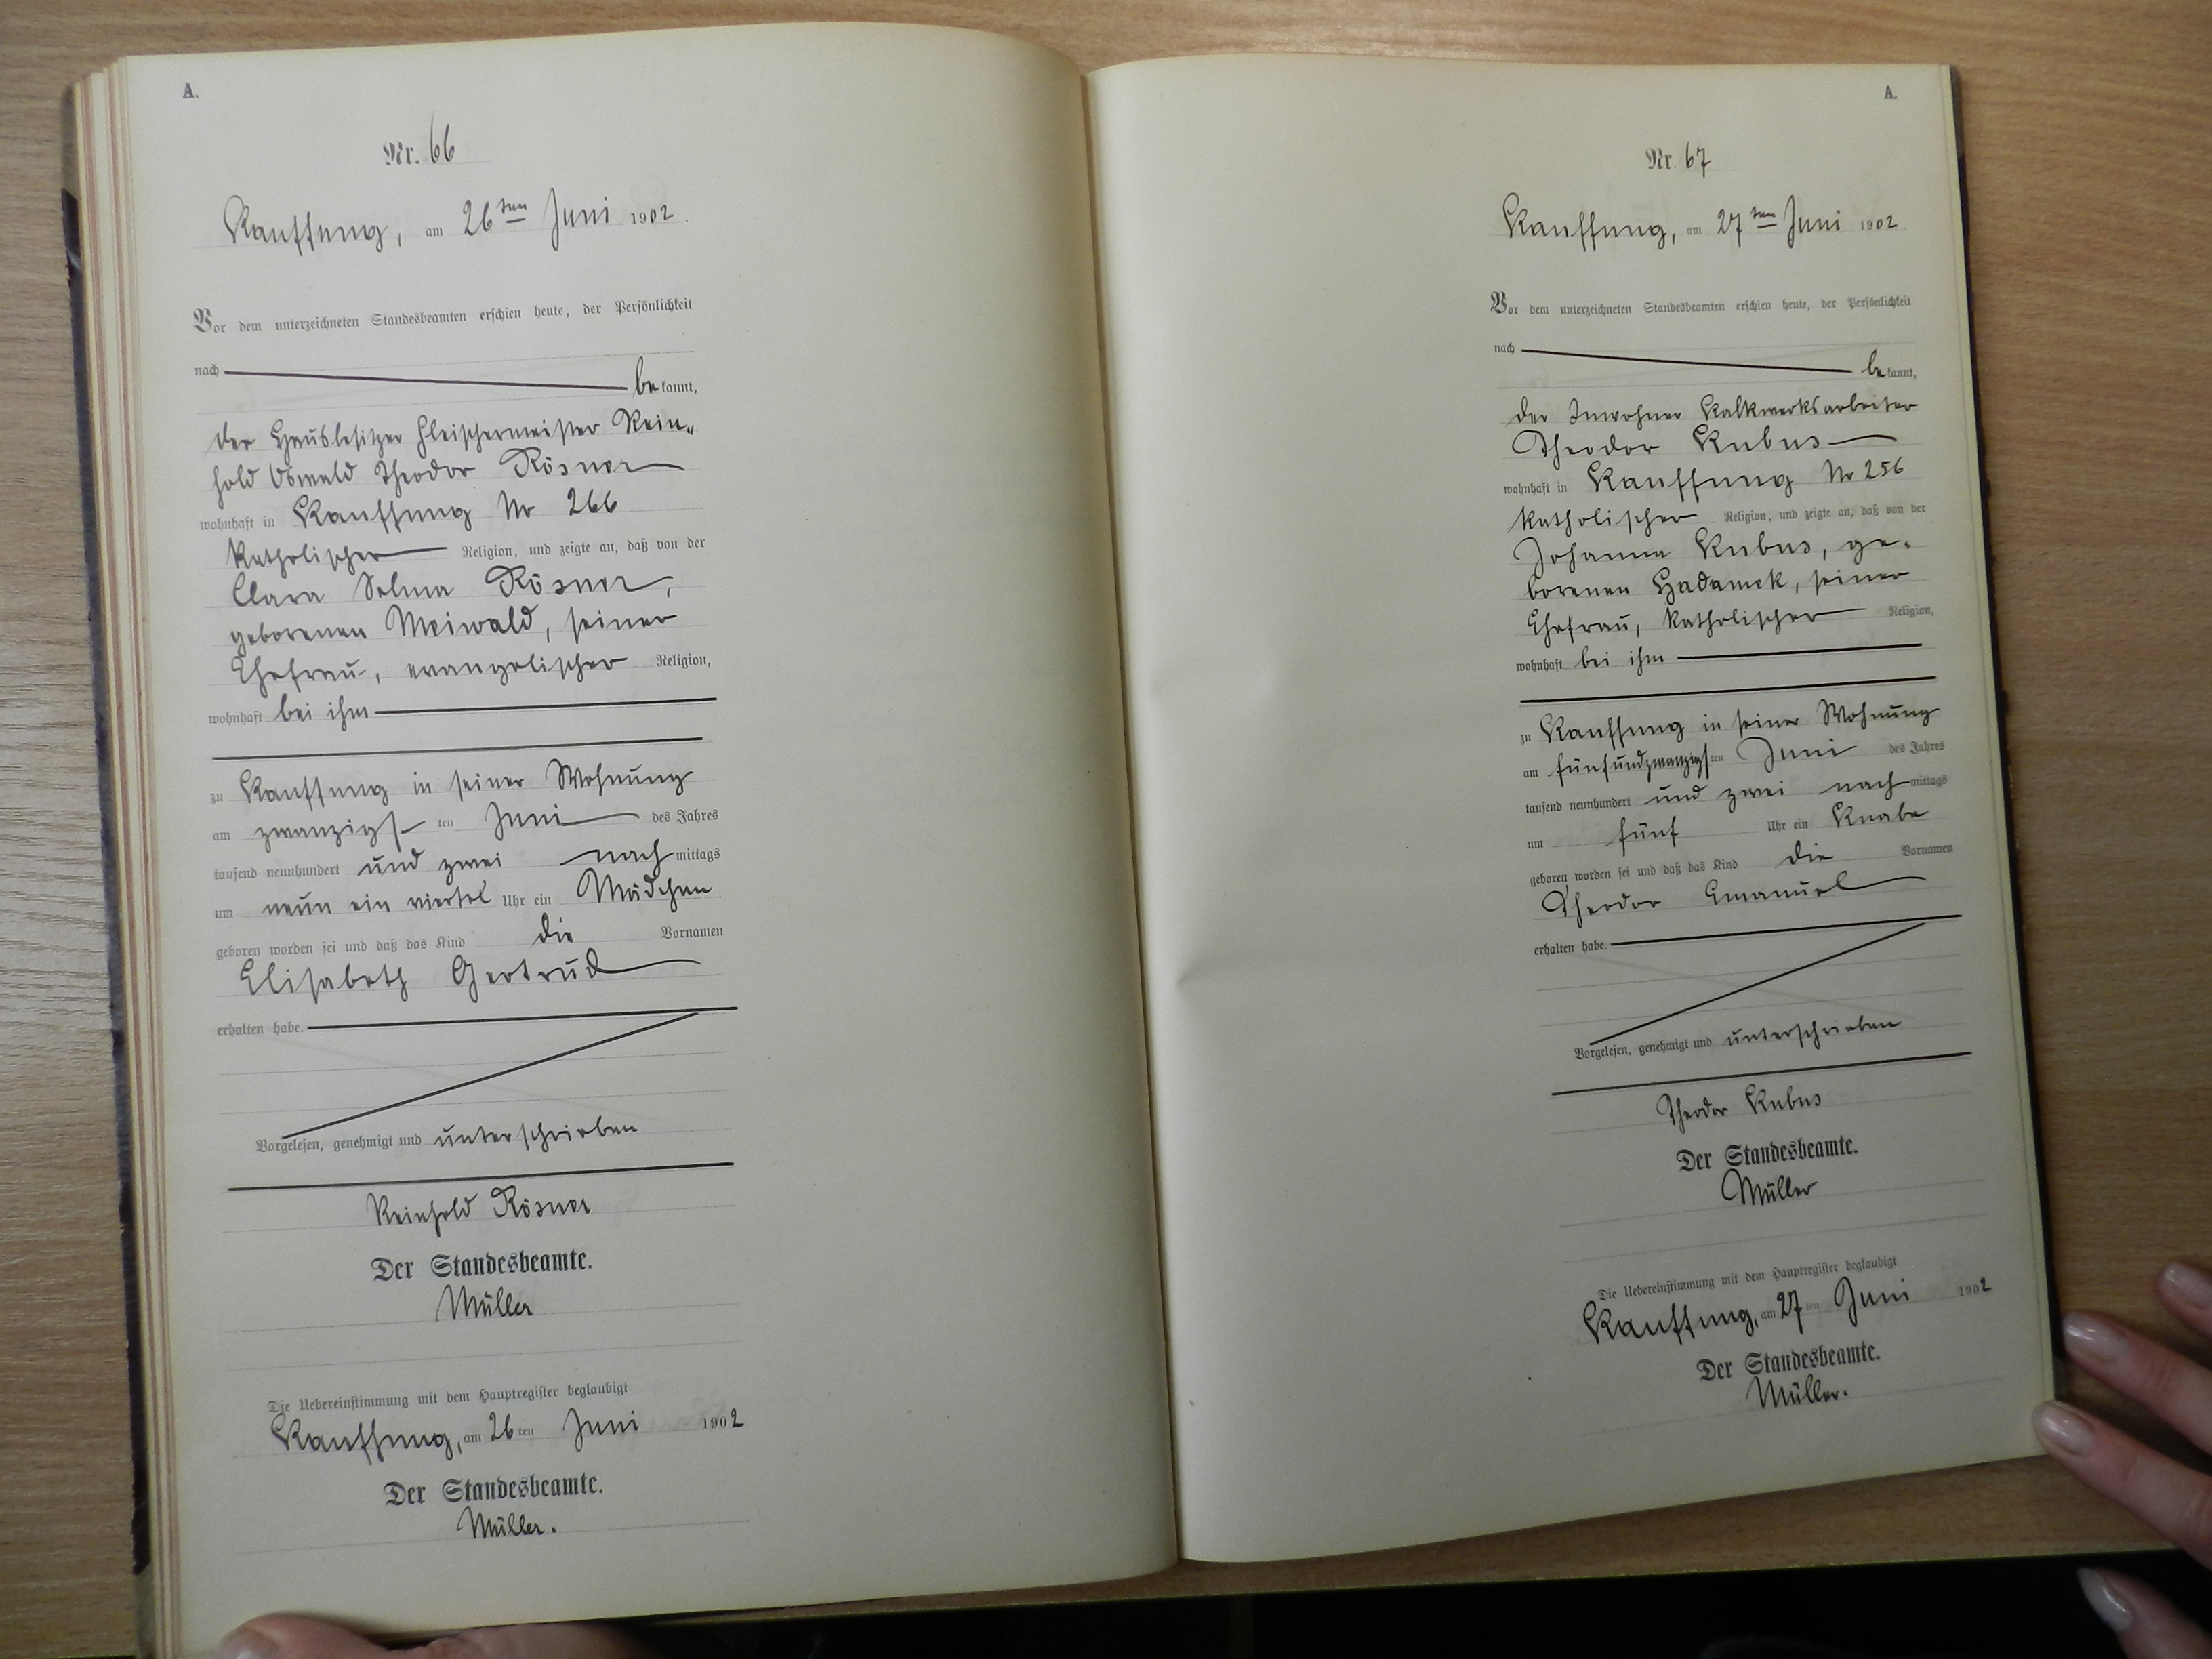 A.
Nr. 66
Kauffung, am 26ten Juni 1902.
Vor dem unterzeichneten Standesbeamten erschien heute, der Persönlichkeit
nach bekannt,
der Hausbesitzer Fleischermeister Rein-
hold Oswald Theodor Rösner
wohnhaft in Kauffung Nr 266
katholischer Religion, und zeigte an, daß von der
Clara Selma Rösner,
geborenen Meiwald, seiner
Ehefrau, evangelischer Religion,
wohnhaft bei ihm
zu Kauffung in seiner Wohnung
am zwanzigsten Juni des Jahres
tausend neunhundert und zwei nachmittags
um neun ein viertel Uhr ein Mädchen
geboren worden sei und daß das Kind die Vornamen
Elisabeth Gertrud
erhalten habe.
Vorgelesen, genehmigt und unterschrieben
Reinhold Rösner
Der Standesbeamte.
Müller
Die Uebereinstimmung mit dem Hauptregister beglaubigt
Kauffung, am 26ten Juni 1902
Der Standesbeamte.
Müller.
A.
Nr. 67
Kauffung, am 27ten Juni 1902
Vor dem unterzeichneten Standesbeamten erschien heute, der Persönlichkeit
nach bekannt,
der Inwohner Kalkwerksarbeiter
Theodor Kubus
wohnhaft in Kauffung Nr 256
katholischer Religion, und zeigte an, daß von der
Johanna Kubus, ge-
borenen Hadamek, seiner
Ehefrau, katholischer Religion,
wohnhaft bei ihm
zu Kauffung in seiner Wohnung
am fünfundzwanzigsten Juni des Jahres
tausend neunhundert und zwei nachmittags
um fünf Uhr ein Knabe
geboren worden sei und daß das Kind die Vornamen
Theodor Emanuel
erhalten habe.
Vorgelesen, genehmigt und unterschrieben
Theodor Kubus
Der Standesbeamte.
Müller
Die Uebereinstimmung mit dem Hauptregister beglaubigt
Kauffung, am 27ten Juni 1902
Der Standesbeamte.
Müller.